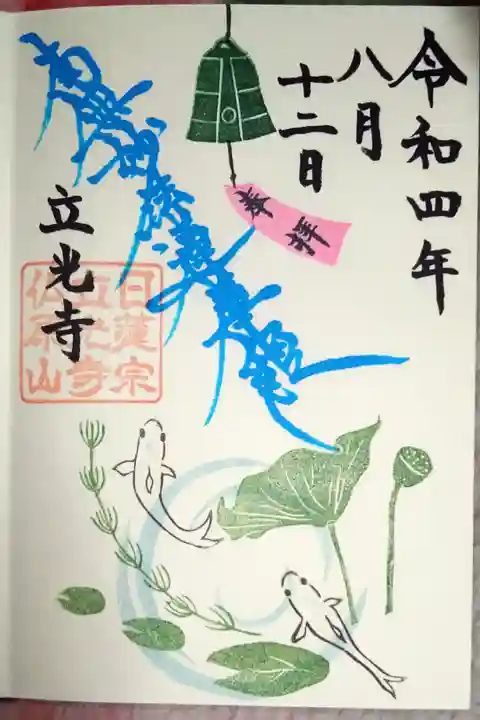 令和四年
八月
十二日
奉拝
南無妙法蓮華経
立光寺
日蓮宗
立光寺
仏原山